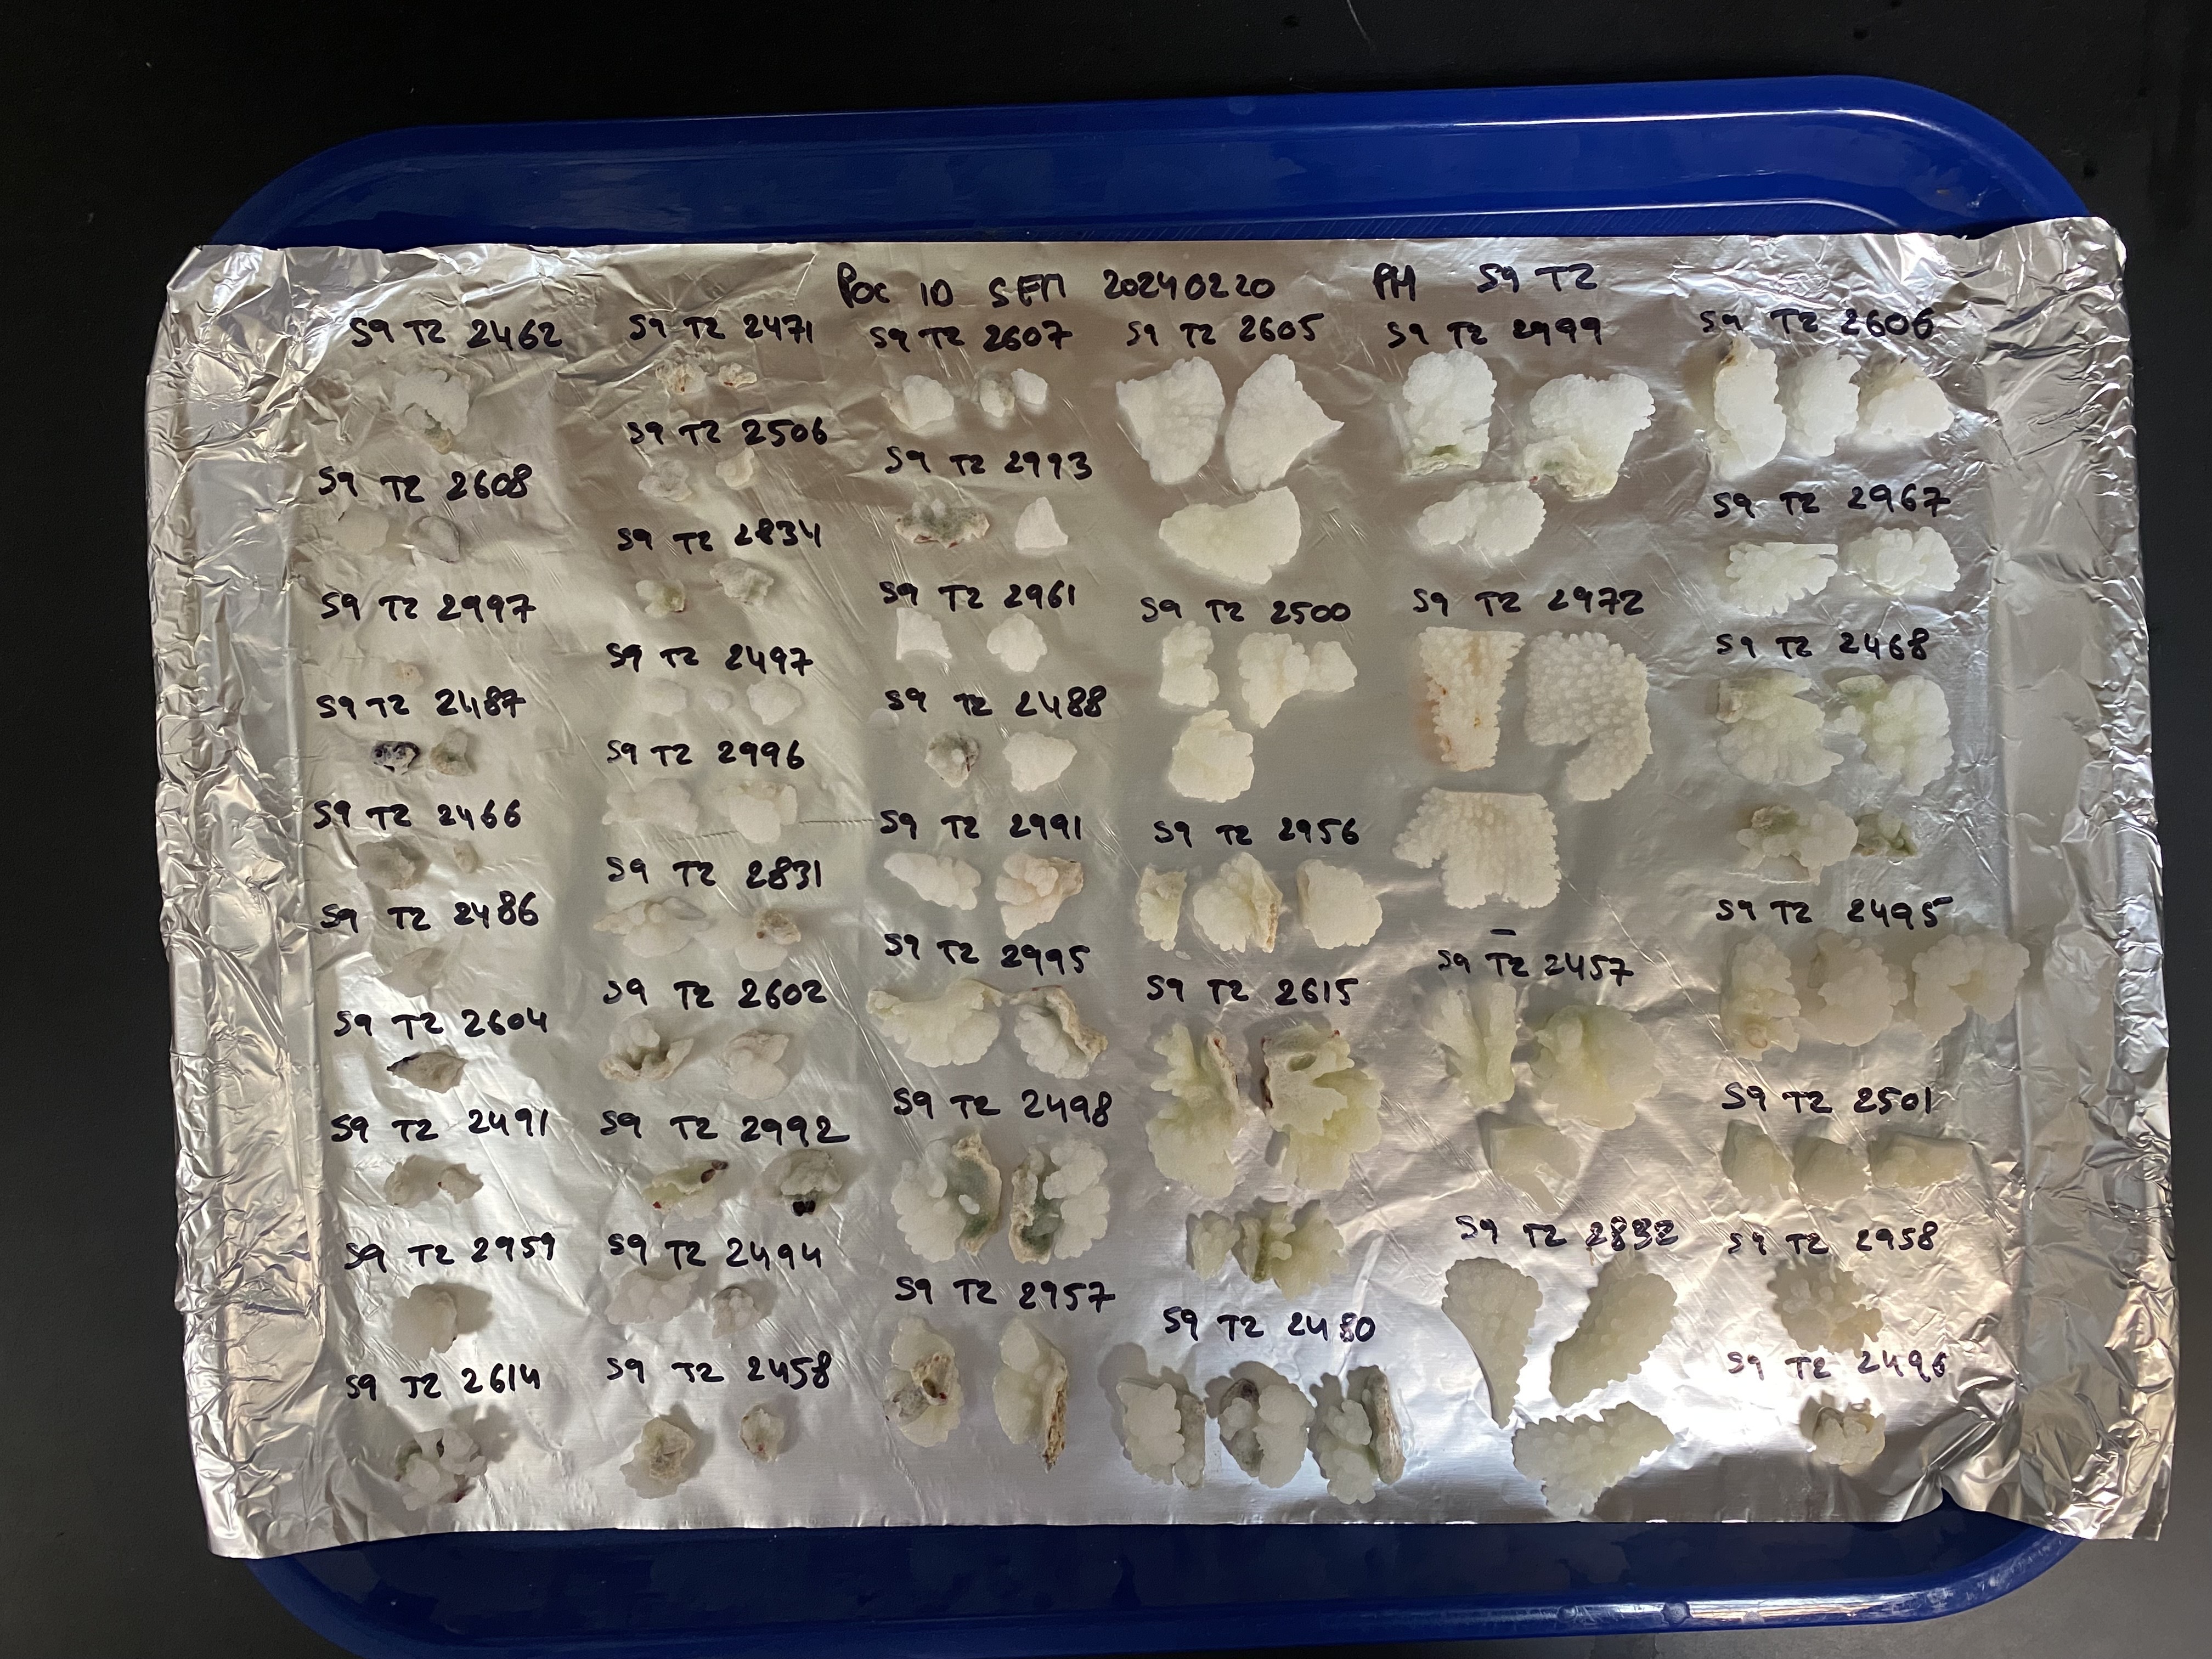 Poc ID SEM 20240220 PH S9 T2
S9 T2 2462
S9 T2 2608
S9 T2 2997
S9 T2 2487
S9 T2 2466
S9 T2 2486
S9 T2 2604
S9 T2 2491
S9 T2 2959
S9 T2 2614
S9 T2 2471
S9 T2 2506
S9 T2 2834
S9 T2 2497
S9 T2 2996
S9 T2 2831
S9 T2 2602
S9 T2 2992
S9 T2 2494
S9 T2 2458
S9 T2 2607
S9 T2 2993
S9 T2 2961
S9 T2 2488
S9 T2 2991
S9 T2 2995
S9 T2 2498
S9 T2 2957
S9 T2 2605
S9 T2 2500
S9 T2 2956
S9 T2 2615
S9 T2
S9 T2 2999
S9 T2 2972
S9 T2 2457
S9 T2 2832
S9 T2 2606
S9 T2 2967
S9 T2 2468
S9 T2 2495
S9 T2 2501
S9 T2 2958
S9 T2 2496